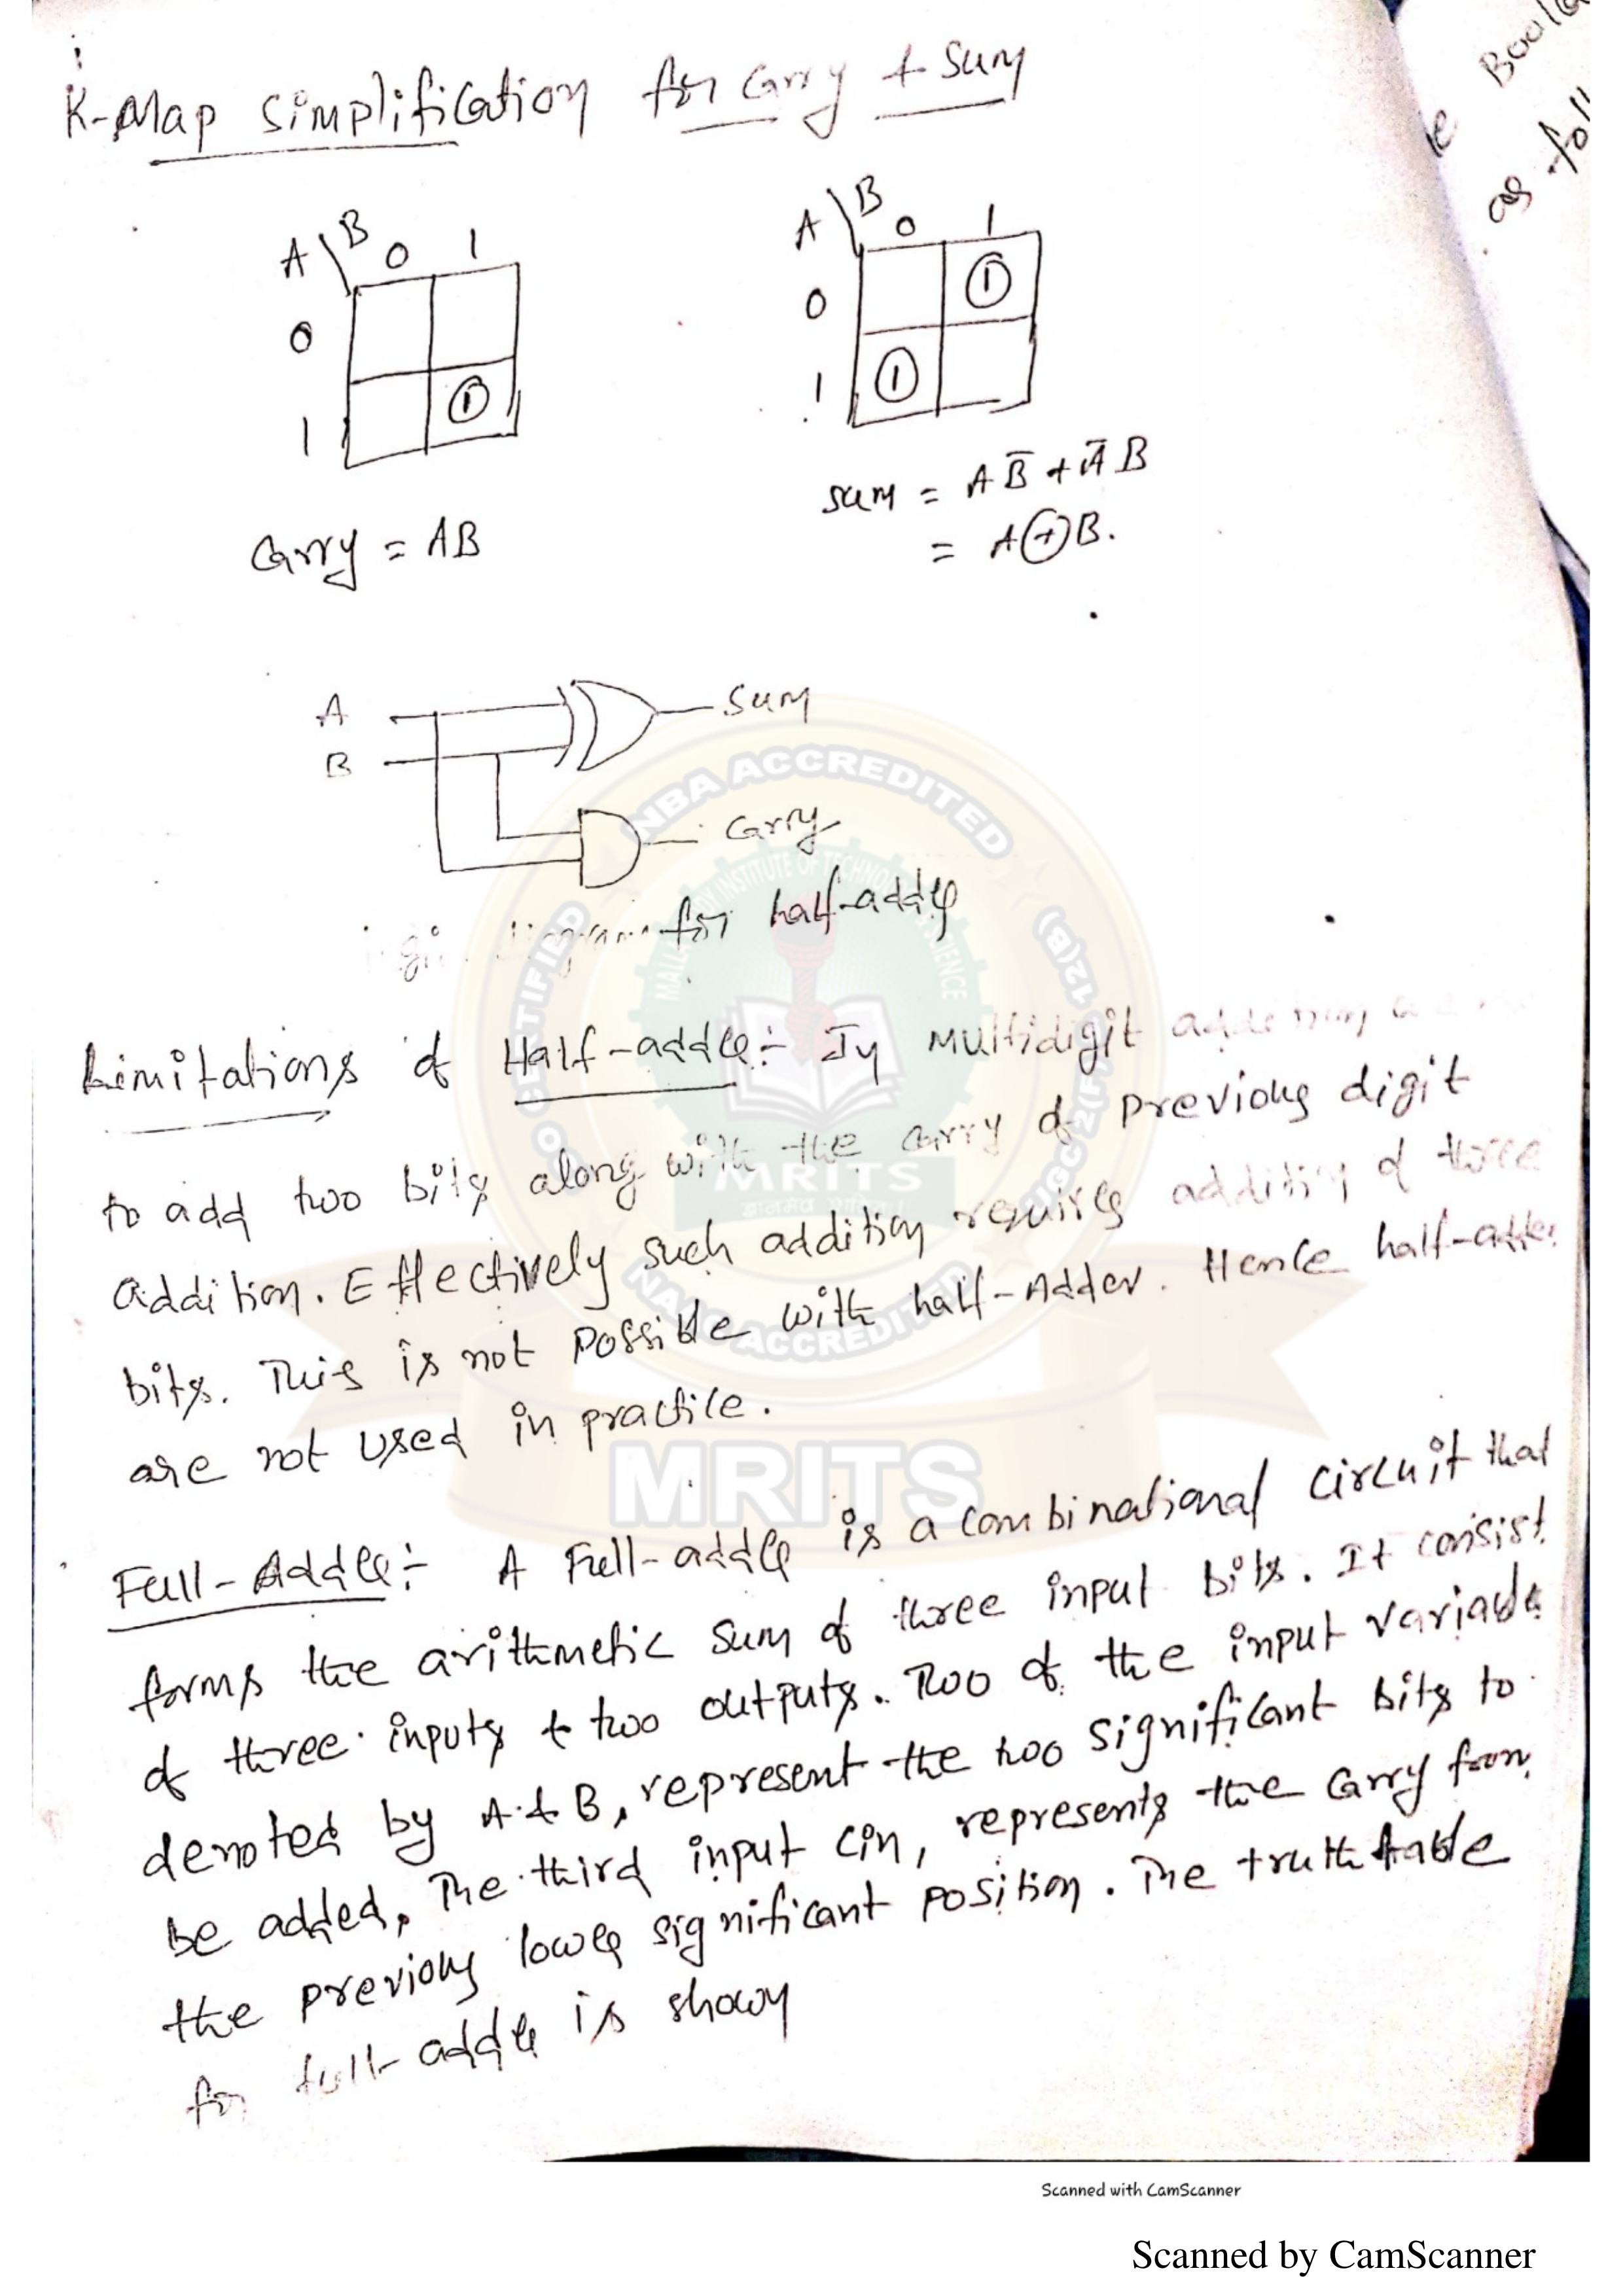 K-Map simplification for Carry & Sum
A\B 0 1
0
1 1
A\B 0 1
0 1
1 1
Carry = AB
sum = AB̅ + A̅B
= A⊕B.
A
B
Sum
Carry
for half-adder
Limitations of Half-adder:- In multidigit addition
to add two bits along with the carry of previous digit
addition. Effectively such addition requires addition of three
bits. This is not possible with half-Adder. Hence half-adder
are not used in practice.
Full-Adder:- A Full-adder is a combinational circuit that
forms the arithmetic sum of three input bits. It consist
of three inputs & two outputs. Two of the input variable
denoted by A & B, represent the two significant bits to
be added, The third input Cin, represents the Carry from
the previous lower significant position. The truth table
for full-adder is shown
Boolea
as foll
NBA ACCREDITED
NAAC ACCREDITED
MRITS
MRITS
Scanned with CamScanner
Scanned by CamScanner